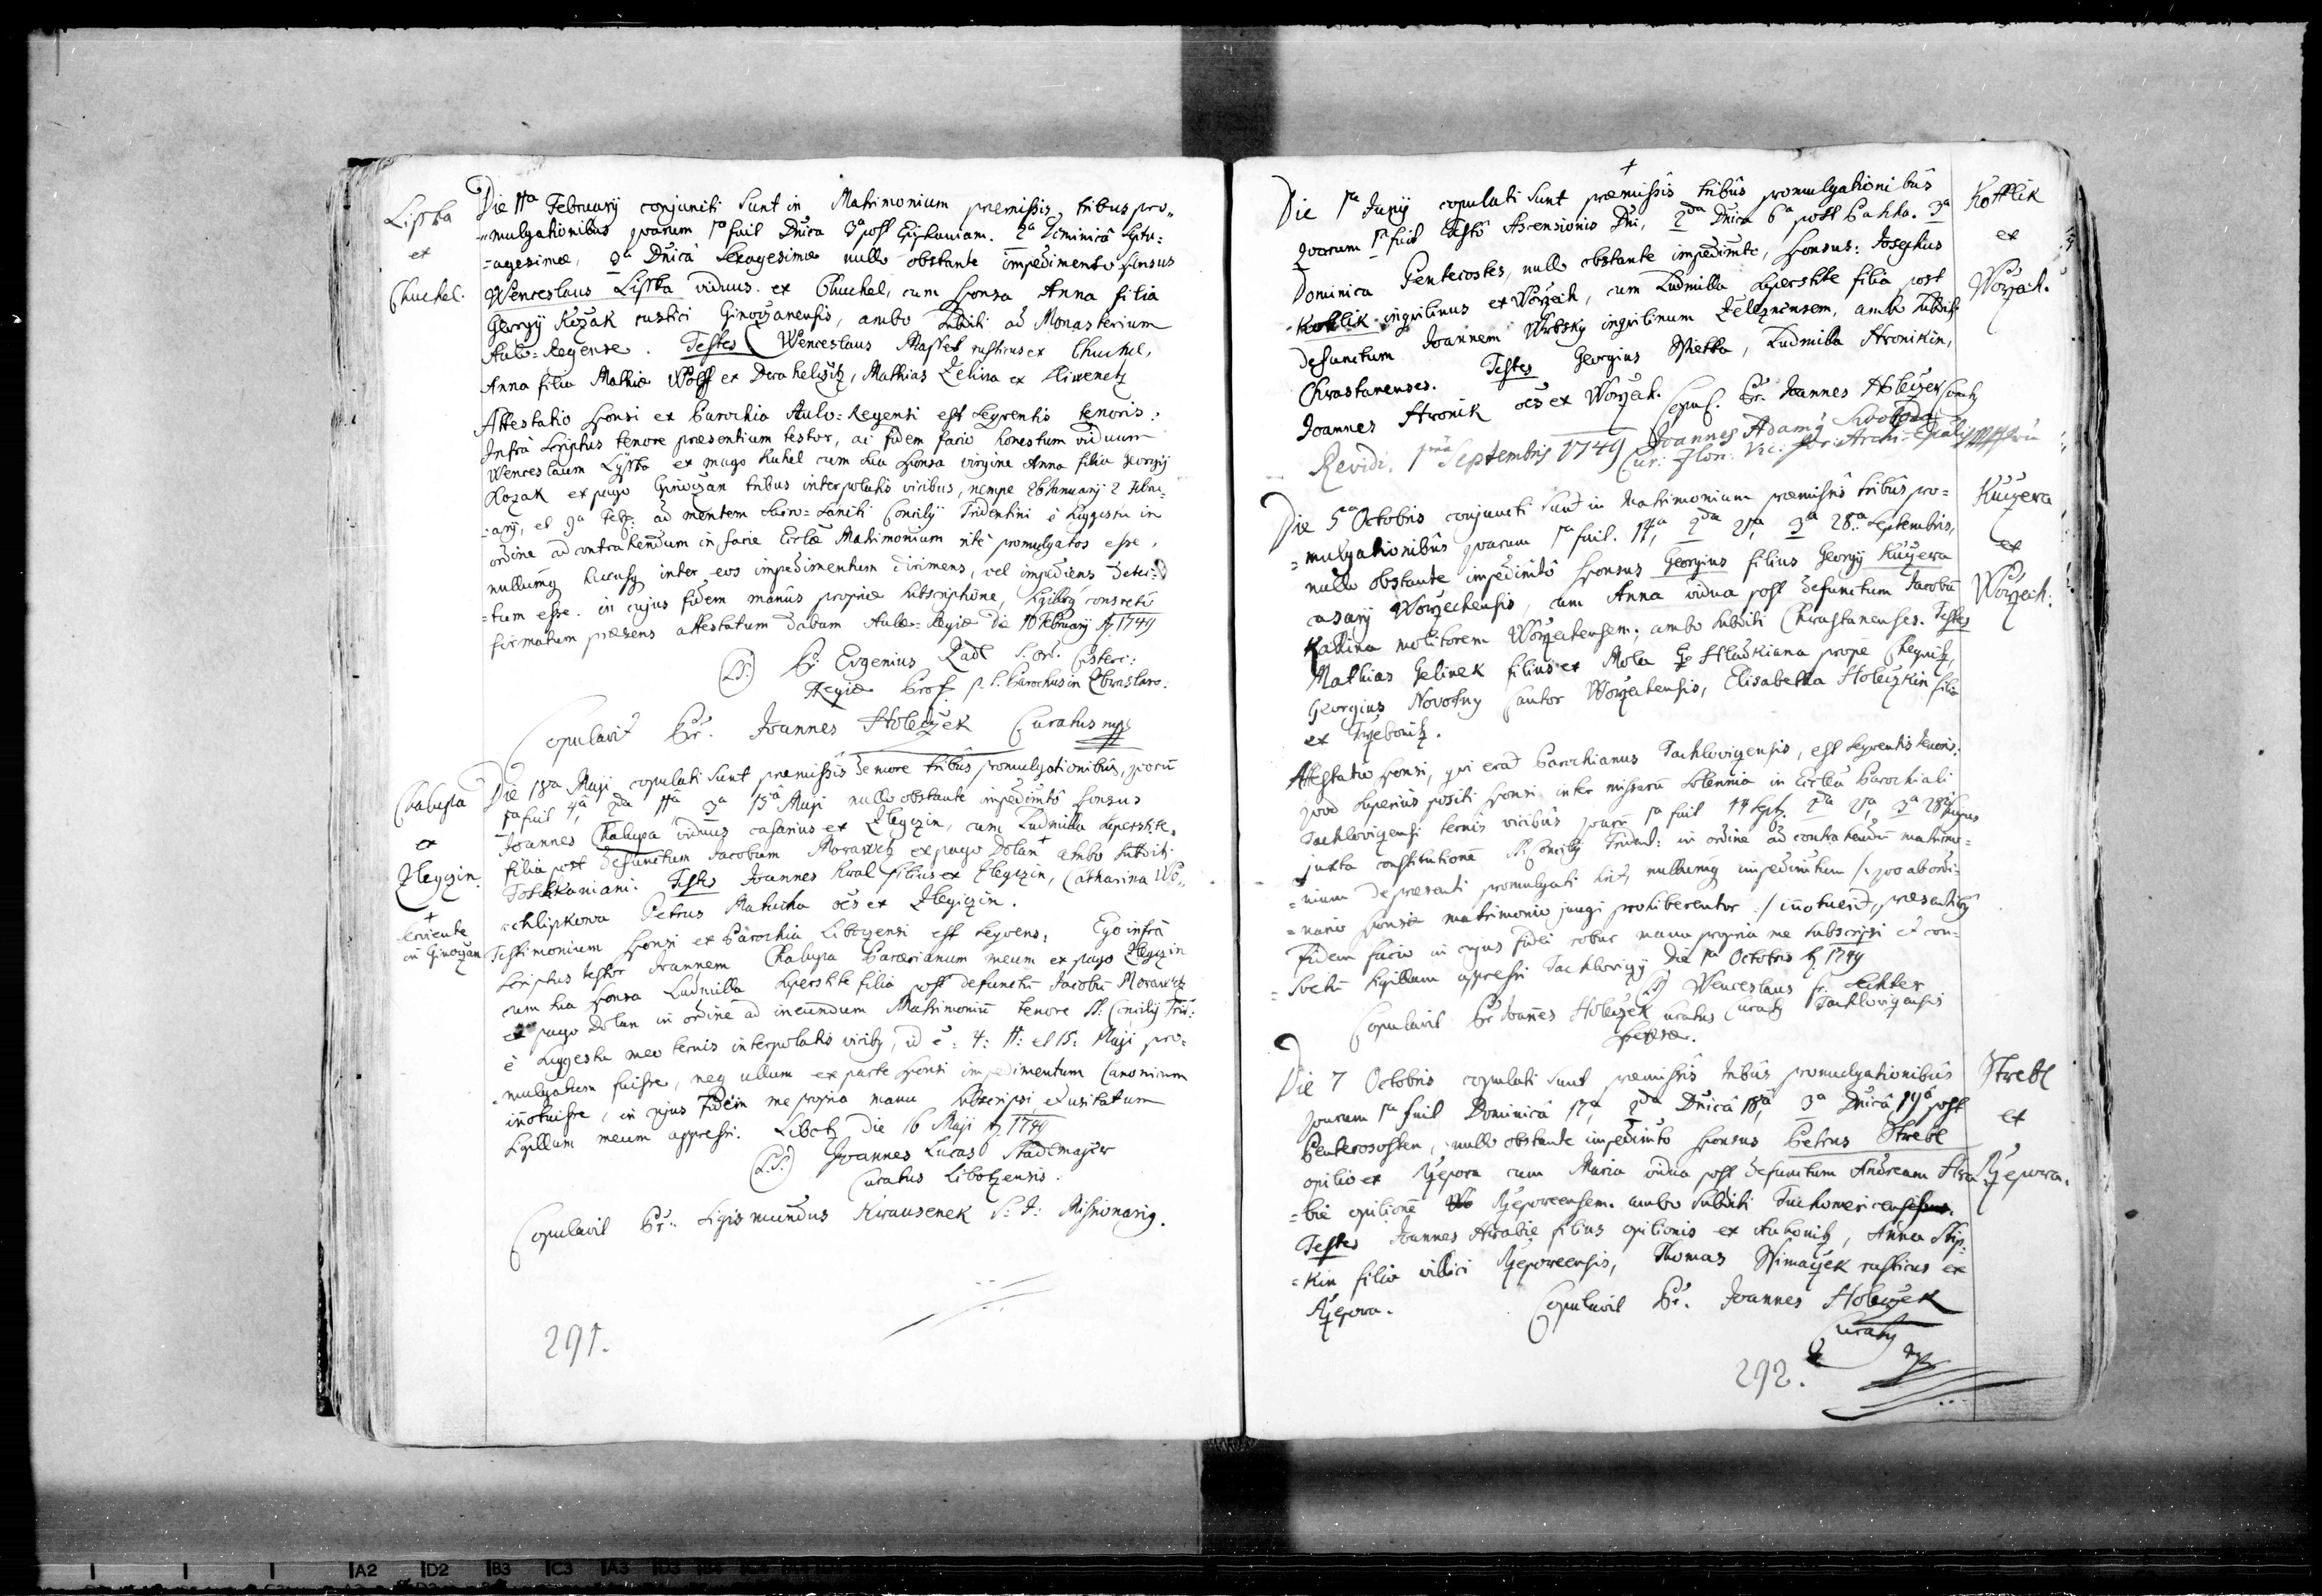 Lisska
ex
Chuchel.
Die 11a February conjuncti sunt in Matrimonium præmissis tribus pro„
„mulgationibus quarum 1a fuit Dnica 3a post Epiphaniam. 2a Dominica Septu:
=agesimæ, 3a Dnica Sexagesimæ nullo obstante impedimento sponsus
Wenceslaus Lisska viduus ex Chuchel, cum sponsa Anna filia
Georgij Kozak rustici Ginoczanensis, ambo subditi ad Monasterium
Aulo=Regense. Testes Wenceslaus Massek rusticus ex Chuchel,
Anna filia Mathiæ Wolff ex Mathias Zelina ex Sliwenetz
Attestatio sponsi ex Parochia Aulo=Regensi est sequentis tenoris:
Infra scriptus tenore præsentium testor, ac fidem facio honestum viduum
Wenceslaum Lysska ex pago Kuhel cum sua sponsa virgine Anna filia Georgij
Kozak ex pago Ginoczan tribus interpolatis vicibus, nempe 26 January 2 Febru:
=ary, et 9a Feb: ad mentem Sacro=Sancti Concilij Tridentini è suggestu in
ordine ad contrahendum in facie Ecclæ Matrimonium ritè promulgatos esse,
nullumq hucusq inter eos impedimentum dirimens, vel impediens detec:
=tum esse. in cujus fidem manus propriæ subscriptione, sigilloq consveto
firmatum præsens attestatum dabam Aulæ=Regiæ die 10 February A 1749
(L.S.) Pr. Eugenius Radl S. Ord. Cisterc:
Regiæ Prof. p. t. Parochus in Zbraslaw.
Copulavit Pr. Joannes Holeczek Curatus mpp
Chalupa
ex
Zlegczin.
+
serviente
in Ginoczan
Die 18va Maji copulati sunt præmissis de more tribus promulgationibus, quarũ
1a fuit 4a, 2da 11a 3a 15a Maji nullo obstante impedimto sponsus
Joannes Chalupa viduus casarius ex Zlegczin, cum Ludmilla superstite
filia post defunctum Jacobum Morawetz ex pago Dolan + ambo subditi
Testes Joannes Kral filius ex Zlegczin, Catharina Wo„
„chlipkowa Petrus Matucha oẽs ex Zlegiczin.
Testimonium sponsi ex Parochia Libocensi est sequens: Ego infra
scriptus testor Joannem Chalupa Parochianum meum ex pago Zlegczin
cum sua sponsa Ludmilla superstite filia post defunctũ Jacobũ Morawetz
ex pago Dolan in ordine ad ineundum Matrimoniũ tenore SS: Concilij Trid:
è suggestu meo ternis interpolatis vicibq, id ẽ: 4: 11: et 15: Maji pro:
=mulgatum fuisse, neq ullum ex parte sponsi impedimentum Canonicum
iñotuisse, in cujus fidem me propria manu subscripsi et usitatum
sigillum meum appressi. Libotz die 16 Maji A 1749
(L.S.) Joannes Lucas Stadlmajer
Curatus Libotzensis.
Copulavit Pr. Sigismundus Krausenek S: J: Missionariq.
291.
+
Die 1a Junij copulati sunt præmissis tribus promulgationibus
quarum 1a fuit Festo Ascensionis Dni, 2da Dnica 6a post Pascha. 3a
Dominica Pentecostes, nullo obstante impedimto, sponsus: Josephus
Kottlik inquilinus ex Worzech, cum Ludmilla superstite filia post
defunctum Joannem Wrbsky inquilinum ambo subditi
Chrastanenses. Testes Georgius Ludmilla Hronikin,
Joannes Hronik oẽs ex Worzech. Copul. Pr. Joannes Holeczek Curatq
Kottlik
ex
Worzech.
Revidi. 1ma Septembris 1749 Joannes Adamq Swoboda
Die 5ta Octobris conjuncti sunt in Matrimonium præmissis tribus pro=
=mulgationibus quarum 1a fuit. 14a, 2da 21a, 3a 28a Septembris,
nullo obstante impedimto sponsus Georgius filius Georgij Kuczera
casarij Worzechensis, cum Anna vidua post defunctum Jacobũ
Kallina molitorem Worzechensem. ambo subditi Chrastanenses. Testes
Mathias Gelinek filius ex Mola Hladkiana prope
Georgius Novotny Cantor Worzechensis, Elisabetha Holeczkin filia
ex Trzebonitz.
Kuczera
ex
Worzech.
Attestatio sponsi, qui erat Parochianus Tachlovicensis, est sequentis tenoris:
quod superius positi sponsi inter missarũ solemnia in Ecclia Parochiali
Tachlovicensi ternis vicibus quarũ 1a fuit 14 Sept. 2da 21a, 3a 28va hujus
juxta constitutionẽ SS: Concilij Trident: in ordine ad contrahendũ matrimo=
=nium de præsenti promulgati sint, nullumq impedimtum /: quo ab ordi=
=nario sponsi matrimonio jungi prohiberentur :/ iñotuerit, præsentibq
Fidem facio in cujus fidei robur manu propria me subscripsi et con=
=svetũ sigillum appressi Tachlovicij die 1a Octobris A 1749
Wenceslaus fr. Lechter
Copulavit Pr Joañes Holeczek Curatus Curatq Tachlovicensis
Die 7 Octobris copulati sunt præmissis tribus promulgationibus
quarum 1a fuit Dominicâ 17a, 2da Dnicâ 18a, 3a Dnicâ 19a post
Pentecosten, nullo obstante impedimto sponsus Petrus Strebl
opilio ex Rzepora cum Maria vidua post defunctum Andream Hra
=bie opilionẽ Rzeporeensem. ambo subditi
Testes Joannes Hrabie filius opilionis ex Anna Skip=
=kin filia villici Rzeporeensis, Thomas Ssimaczek rusticus ex
Rzepora. Copulavit Pr. Joannes Holeczek
Curatq mpp
Strebl
ex
Rzepora.
292.